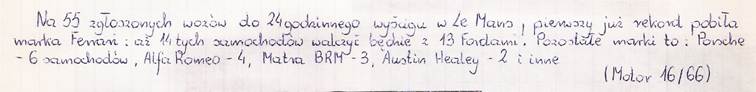 Na 55 zgłoszonych wozów do 24 godzinnego wyścigu w Le Mans, pierwszy już rekord pobiła
marka Ferrari: aż 14 tych samochodów walczyć będzie z 13 Fordami. Pozostałe marki to: Porsche
- 6 samochodów, Alfa Romeo - 4, Matra BRM - 3, Austin Healey - 2 i inne
(Motor 16/66)